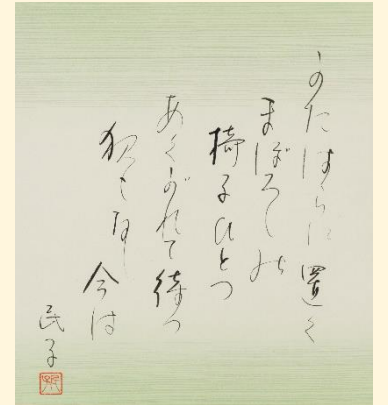 かたはらに置く
まぼろしの
椅子ひとつ
あくがれて待つ
夜もなし
今は
民子